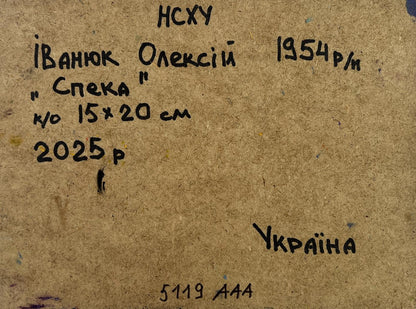 НСХУ
Іванюк Олексій 1954 р/н
"Спека"
к/о 15×20 см
2025 р
Україна
5119 ААА